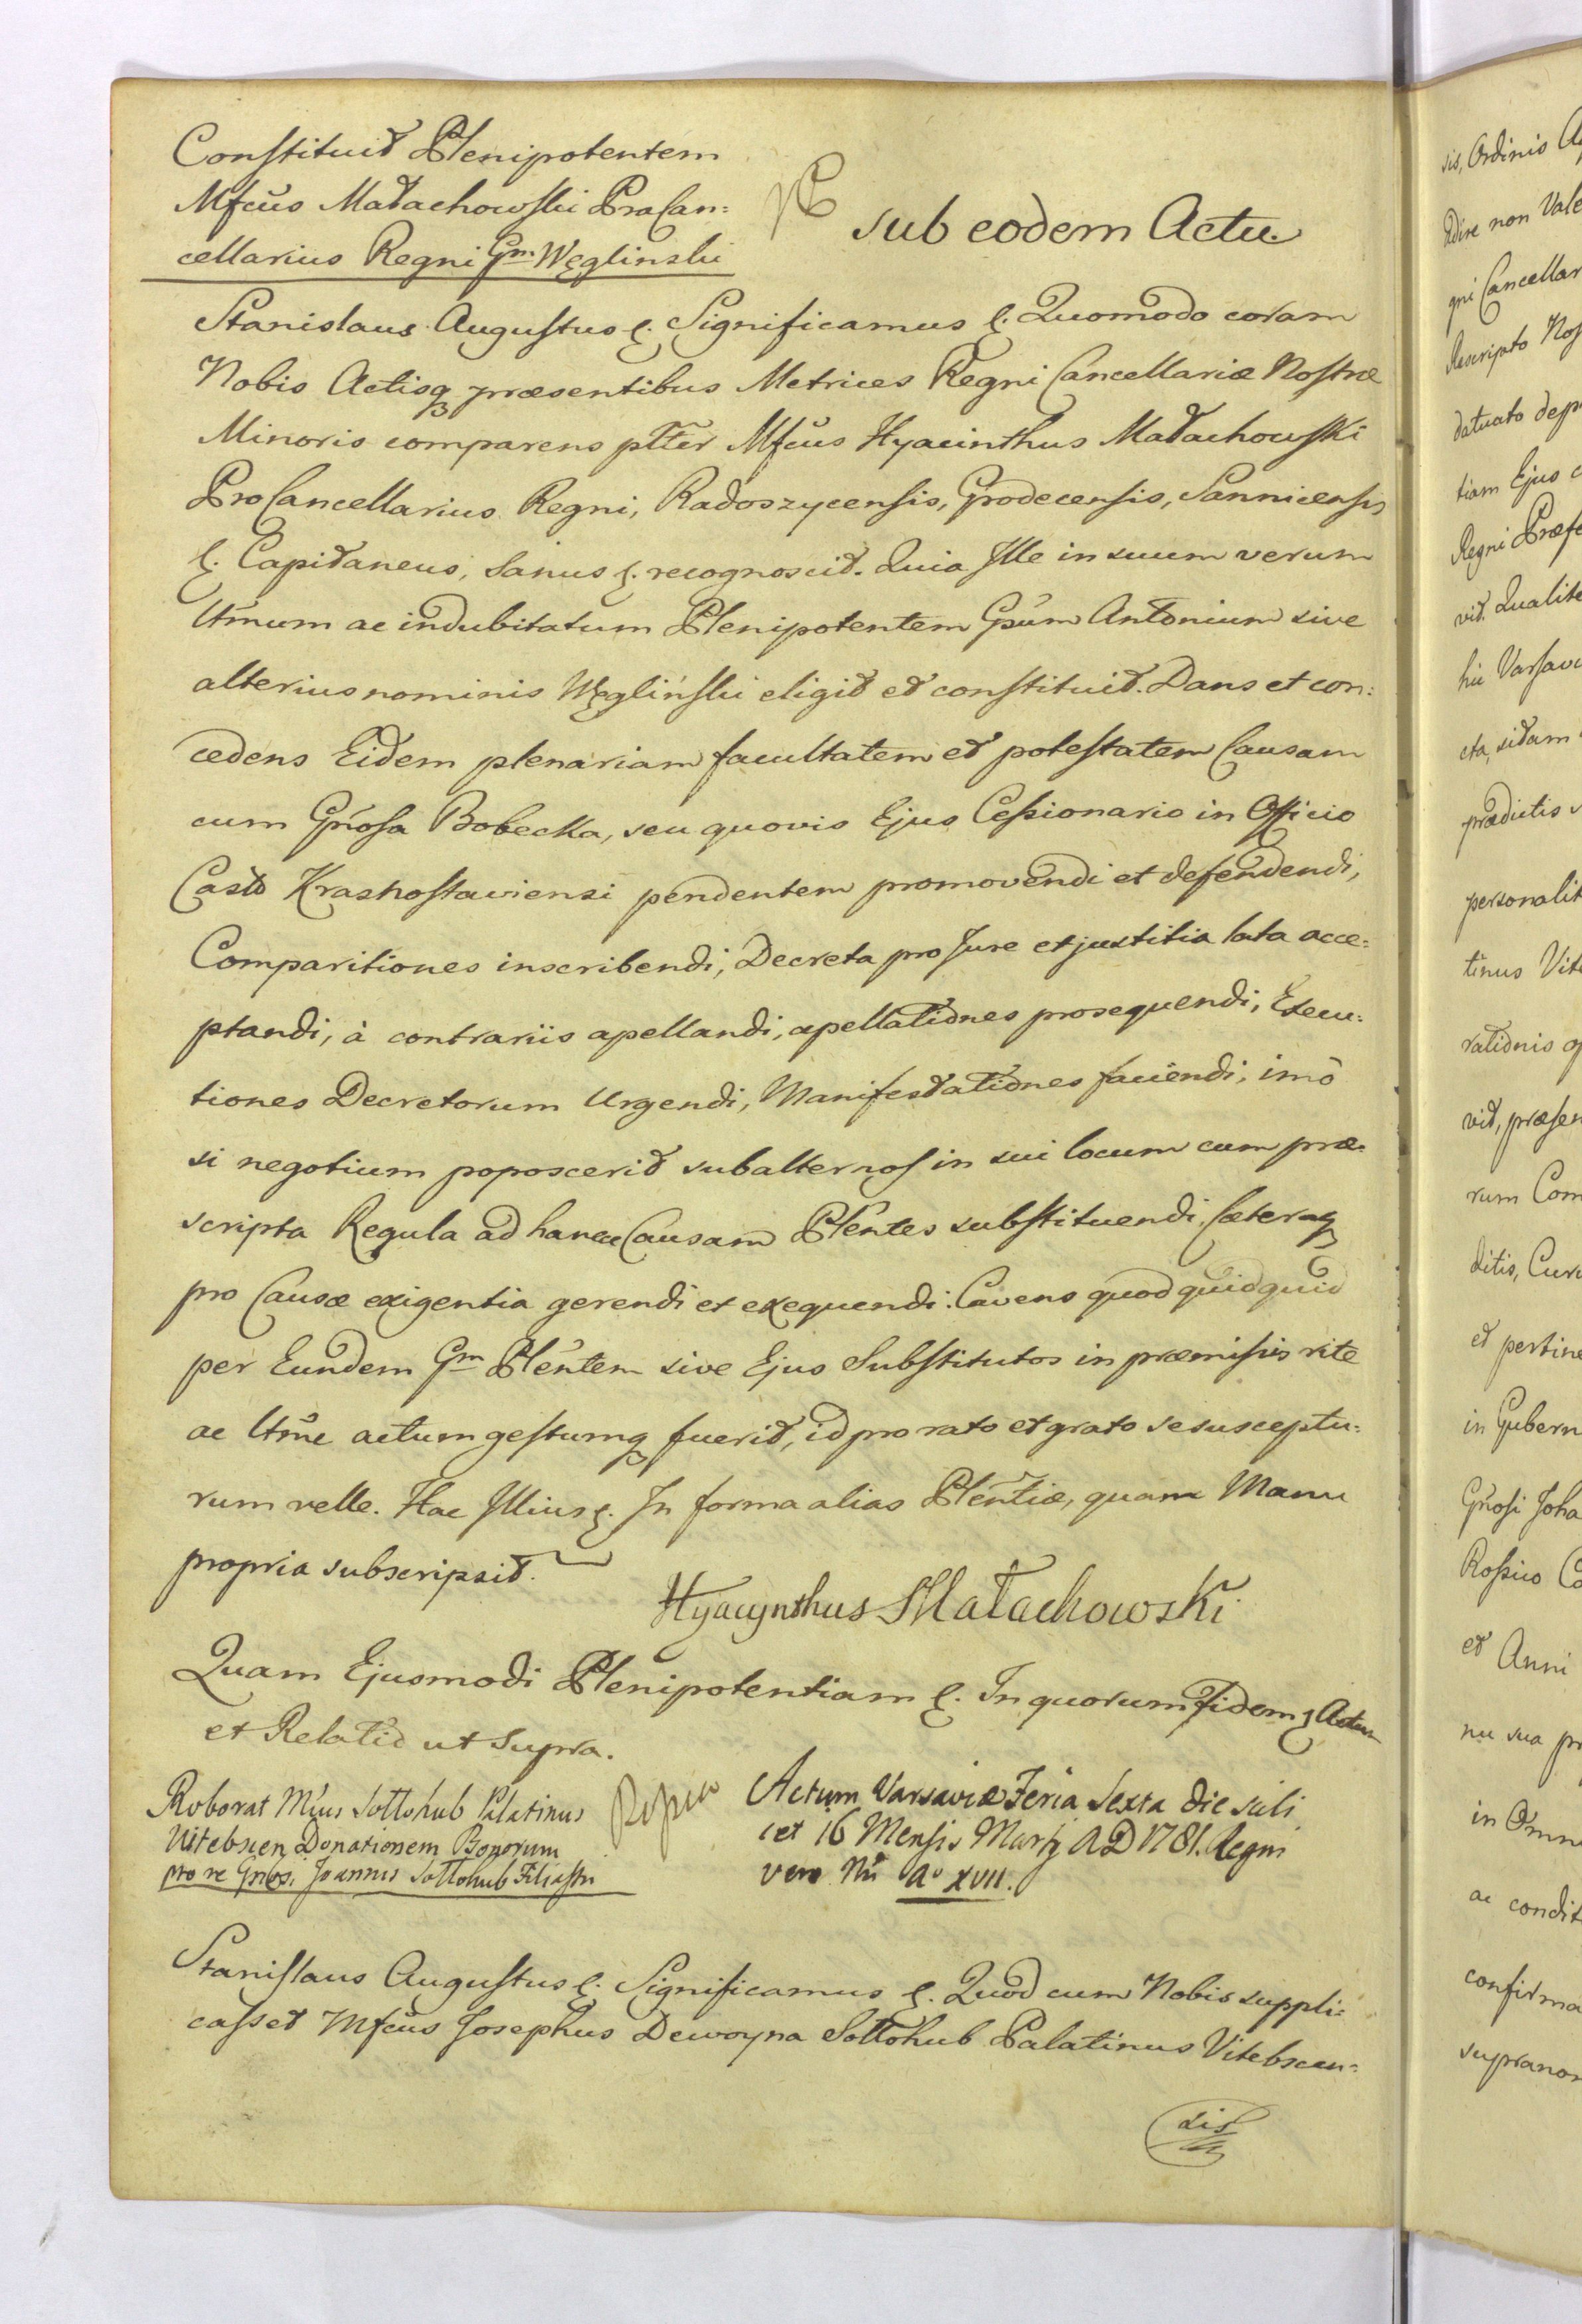 Constituit Plenipotentem
Mfcūs Małachowski ProCan:
cellarius Regni Gm Węglinski
sub eodem Actu.
Stanislaus Augustus &. Significamus &. Quomodo coram
Nobis Actisq præsentibus Metrices Regni Cancellariæ Nostræ
Minoris comparens pltēr Mfcūs Hyacinthus Małachowski
ProCancellarius Regni, Radoszycensis, Grodecensis, Sannicensis
&. Capitaneus, Sanus &. recognoscit. Quia Ille in suum verum
ltmum ac indubitatum Plenipotentem Gsūm Antonium sive
alterius nominis Węgliński eligit et constituit. Dans et con:
cedens Eidem plenariam facultatem et potestatem Causam
cum Gnosa Bobecka, seu quovis Ejus Cessionario in Officio
Castō Krasnostaviensi pendentem promovendi et defendendi,
Comparitiones inscribendi, Decreta pro Jure et justitia lata acce:
ptandi, à contrariis apellandi, apellationes prosequendi, Execu:
tiones Decretorum Urgendi, Manifestationes faciendi, imò
si negotium poposcerit subalternos in sui locum cum præ:
scripta Regula ad hance Causam Plentes substituendi, Cæteraq
pro Causæ exigentia gerendi et exequendi. Cavens quod quidquid
per Eundem Gm Plēntem sive Ejus Substitutos in præmissis rite
ac ltmē actum gestumq fuerit, id pro rato et grato se susceptu:
rum velle. Hac Illius &. In forma alias Plēntiæ, quam Manu
propria subscripsit.
Hyacynthus Małachowski
Quam Ejusmodi Plenipotentiam &. In quorum Fidem & Actum
et Relatio ut Supra.
Roborat Mcus Sołłohub Palatinus
Vitebscen Donationem Bonorum
pro re Gnosi Joannis Sołłohub Filiastri
Actum Varsaviæ Feria Sexta die scili
cet 16 Mensis Martij AD 1781. Regni
vero Nri Ao XVII.
Stanislaus Augustus &. Significamus &. Quod cum Nobis suppli:
casset Mfcūs Josephus Dewoyna Sołłohub Palatinus Vitebscen:
sis
sis, Ordinis
adire non Vale
gni Cancellar
Rescripto Nos
datuato
tiam Ejus
Regni Præfe
vit. Qualite
Varsavi
cta, sitam
prædictis
personalit
tinus Vite
rationis
vit, præsen
rum Com
ditis, Cur
et pertine
in Gubern
Gnosi Joha
Rossico
et Anni
nu sua
in Omn
ac condit
confirma
supranom